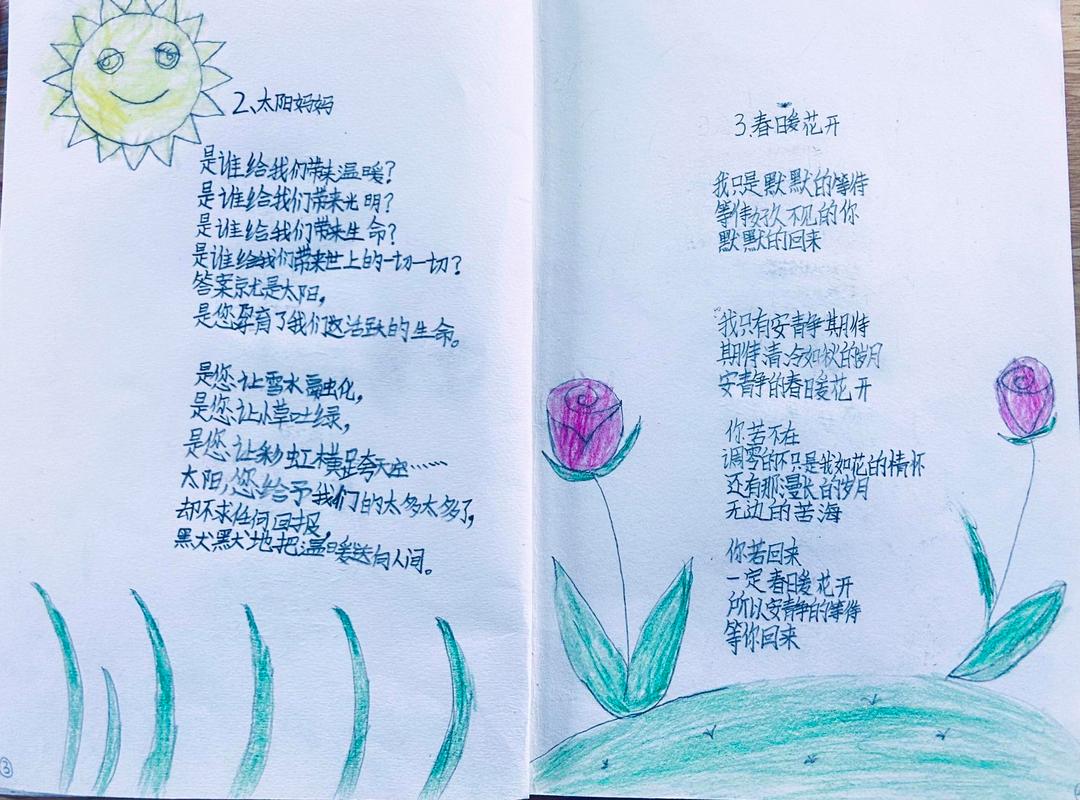 2、太阳妈妈
是谁给我们带来温暖?
是谁给我们带来光明?
是谁给我们带来生命?
是谁给我们带来世上的一切一切?
答案就是太阳,
是您孕育了我们这活跃的生命。
是您让雪水融化,
是您让小草吐绿,
是您让彩虹横跨天座……
太阳,您给予我们的太多太多了,
却不求任何回报,
默默地把温暖送向人间。
③
3.春日暖花开
我只是默默的等待
等待好久不见的你
默默的回来
我只有安静期待
期待清冷如秋的岁月
安静的春日暖花开
你苦不在
调零的不只是我如花的情怀
还有那漫长的岁月
无边的苦海
你若回来
一定春日暖花开
所以安静的等待
等你回来